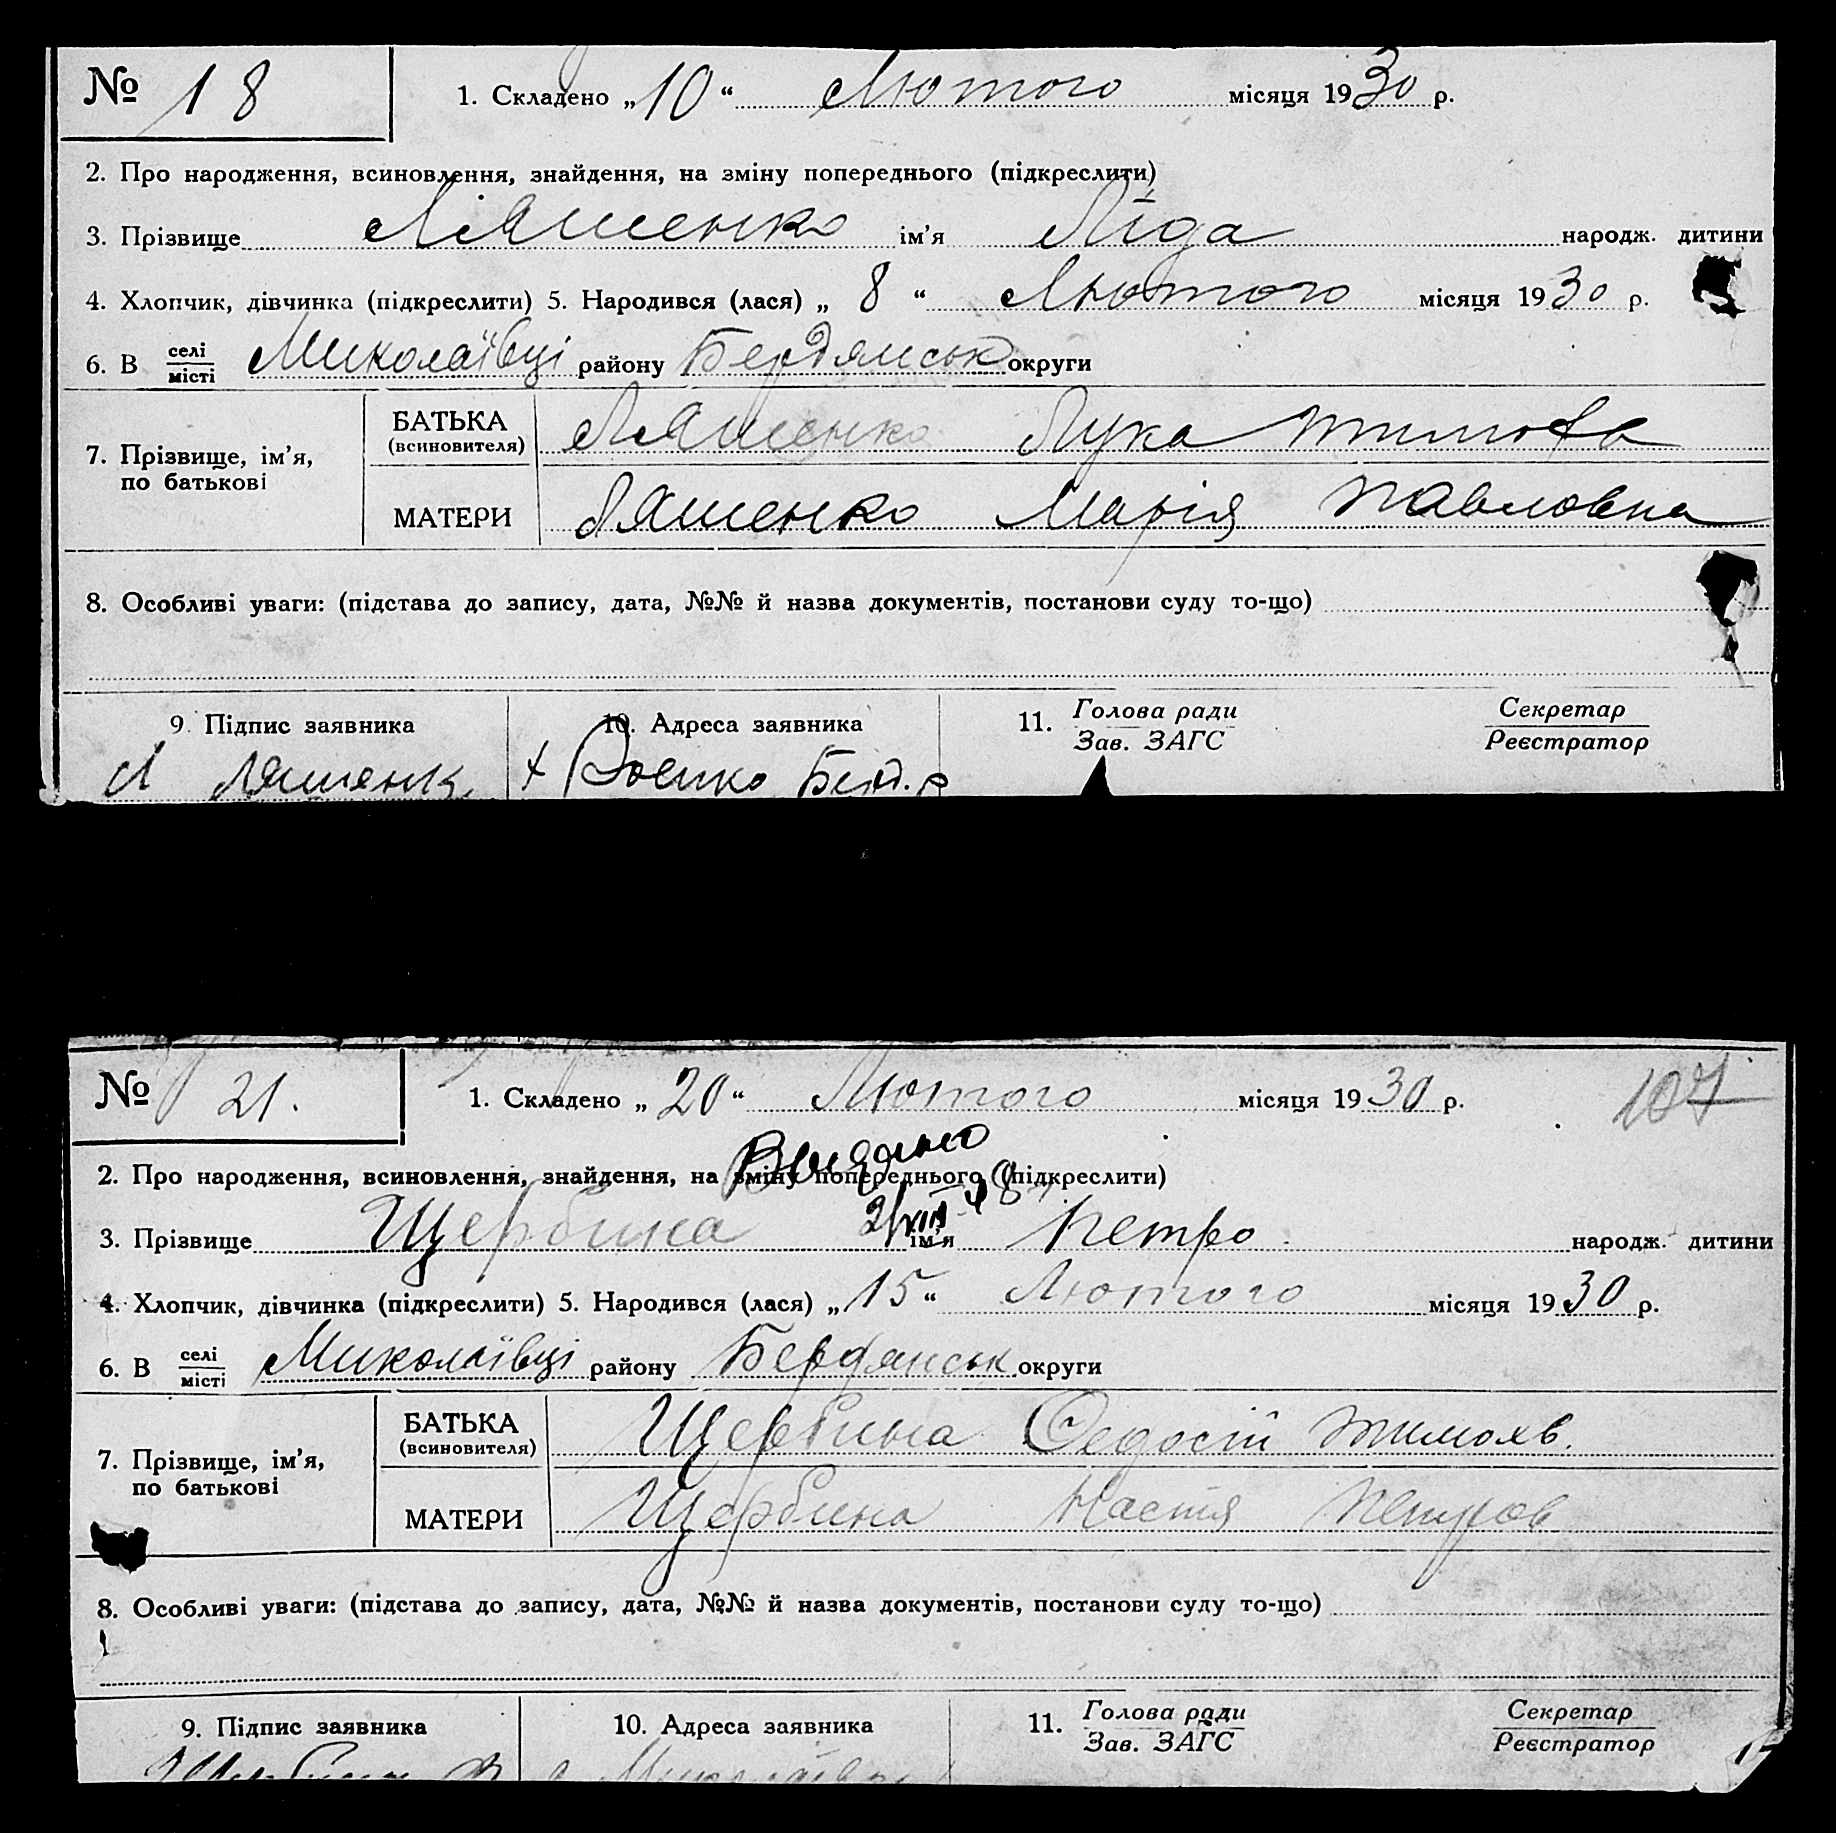 № 18 1. Складено „10“ Лютого місяця 1930 р.
2. Про народження, всиновлення, знайдення, на зміну попереднього (підкреслити)
3. Прізвище Ляшенко ім’я Ліда народж. дитини
4. Хлопчик, дівчинка (підкреслити) 5. Народився (лася) „ 8 “ Лютого місяця 1930 р.
6. В селі Миколаївці району Бердянськ округи
місті
БАТЬКА
(всиновителя) Ляшенко Лука
7. Прізвище, ім’я,
по батькові
МАТЕРИ Ляшенко Марія Павловна
8. Особливі уваги: (підстава до запису, дата, №№ й назва документів, постанови суду то-що)
9. Підпис заявника 10. Адреса заявника 11. Голова ради Секретар
Зав. ЗАГС Реєстратор
Л Ляшенк Берд. р
№ 21. 1. Складено „20“ Лютого місяця 1930 р. 107
Видано
2. Про народження, всиновлення, знайдення, на зміну попереднього (підкреслити)
3. Прізвище Щербина ім’я Петро народж. дитини
4. Хлопчик, дівчинка (підкреслити) 5. Народився (лася) „15“ Лютого місяця 1930 р.
6. В селі Миколаївці району Бердянськ округи
місті
БАТЬКА
(всиновителя) Щербина Федосій Тимохв.
7. Прізвище, ім’я,
по батькові
МАТЕРИ Щербина Настя Петров
8. Особливі уваги: (підстава до запису, дата, №№ й назва документів, постанови суду то-що)
9. Підпис заявника 10. Адреса заявника 11. Голова ради Секретар
Зав. ЗАГС Реєстратор